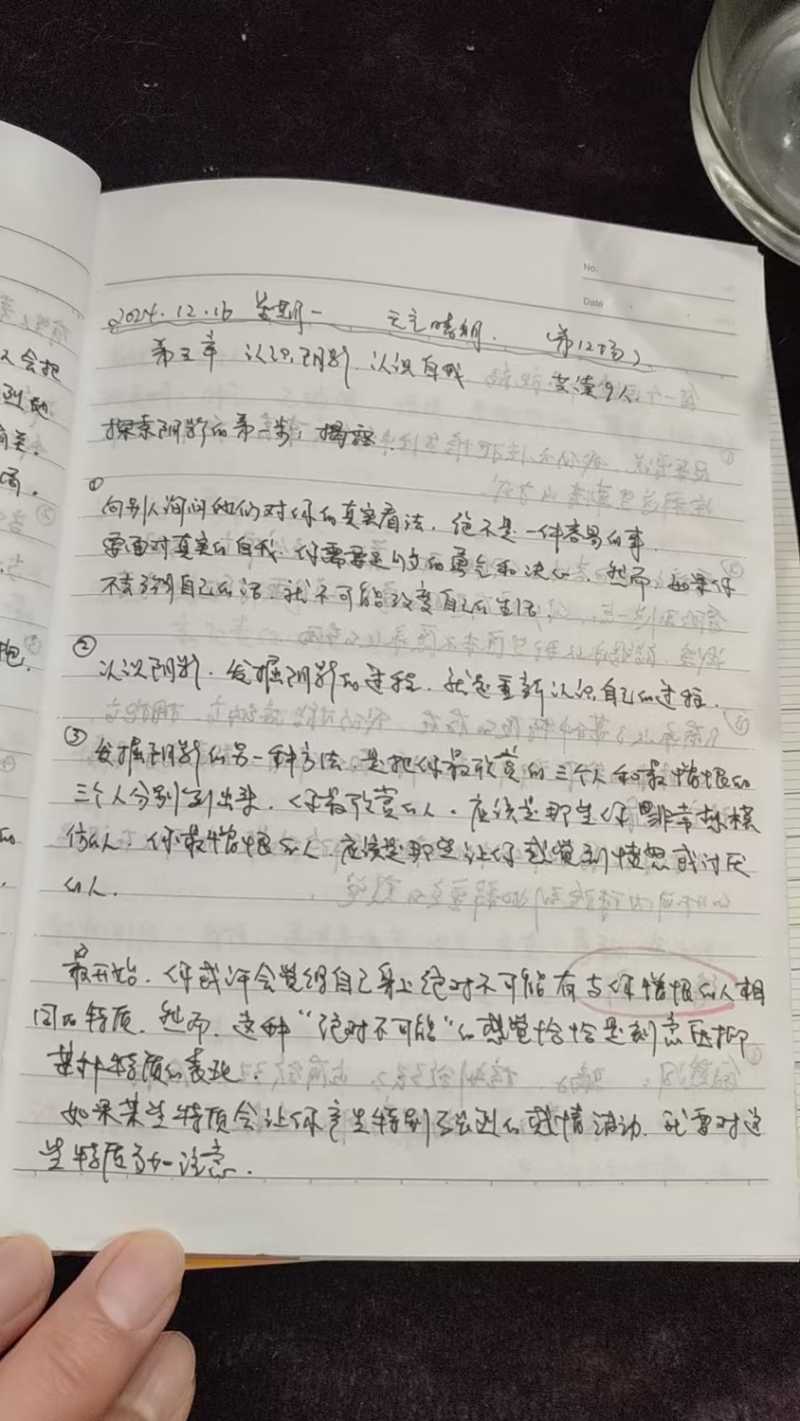 No.
Date
2024.12.16 星期一 元宝晴朗. (第127场)
第三章 认识阴影 认识自我 共读9人.
探索阴影的第一步: 揭露.
①
向别人询问他们对你的真实看法, 绝不是一件容易的事.
要面对真实的自我. 你需要足够的勇气和决心. 然而, 如果你
不去了解自己的话. 就不可能改变自己的生活.
②
认识阴影. 发掘阴影的过程. 就是重新认识自己的过程.
③ 发掘阴影的另一种方法. 是把你最欣赏的三个人和最憎恨的
三个人分别写出来. 你最欣赏的人. 应该是那些你非常想模
仿的人. 你最憎恨的人. 应该是那些让你感觉到愤怒或讨厌
的人.
最开始. 你或许会觉得自己身上绝对不可能有与你憎恨的人相
同的特质. 然而. 这种“绝对不可能”的感觉恰恰是刻意压抑
某种特质的表现.
如果某些特质会让你产生特别强烈的感情波动. 就要对这
些特质多加注意.
人会把
到他
有关.
抱.
的